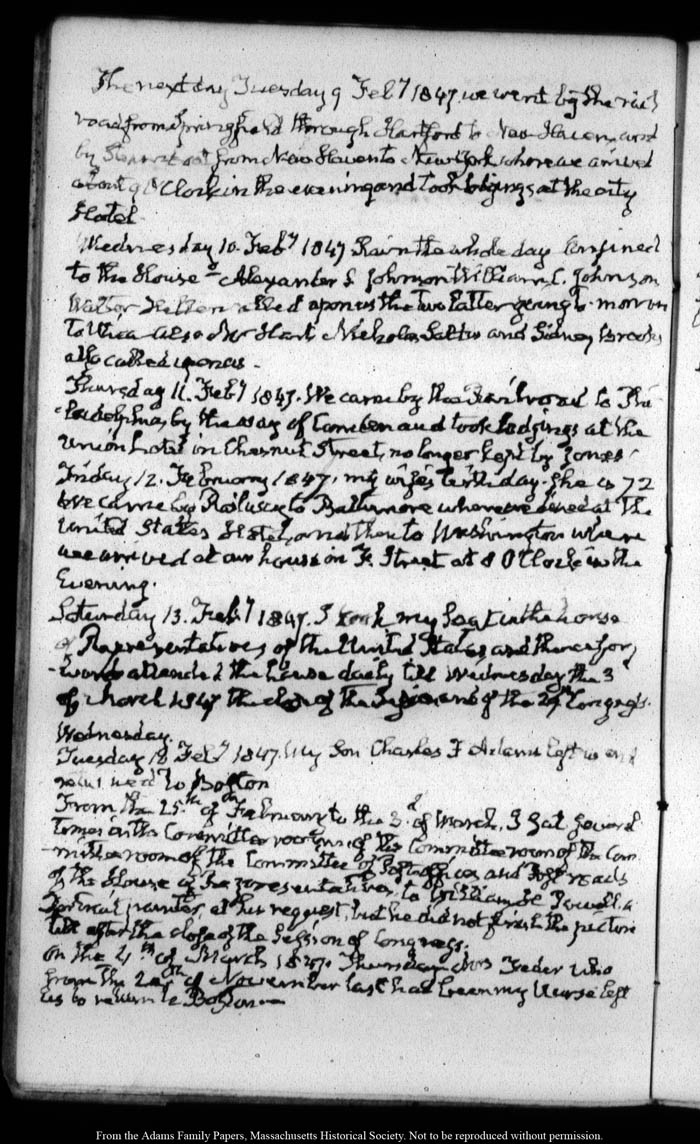 The next day Tuesday 9 Feby 1847 we went by the rail
road from Springfield through Hartford to New Haven, and
by Steamboat from New Haven to New York where we arrived
about 9 O'Clock in the evening and took lodgings at the city
Hotel.
Wednesday 10. Feby 1847 Rain the whole day Confined
to the House Alexander S Johnson William C. Johnson
Walter called upon us the two latter going to-morrow
to Utica also Mr Hart Nicholas and Sidney Brooks
also called upon us.
Thursday 11. Feby 1847. We came by the Railroad to Phi-
-ladelphia, by the way of Camden and took lodgings at the
Union Hotel in Chesnut Street, no longer kept by Jones.
Friday 12. February 1847. my wife's birthday. She is 72
We came by Railway to Baltimore where we dined at the
United States Hotel, and then to Washington where
we arrived at our house in F. Street at 8 O'Clock in the
Evening.
Saturday 13. Feby 1847. I took my Seat in the house
of Representatives of the United States and thence for-
-wards attended the house daily till Wednesday the 3d
of March 1847 the close of the Session and of the 29th Congress.
Wednesday.
Tuesday 18 Feby 1847. My Son Charles F Adams left us and
returned to Boston
From the 25th of February to the 3d of March, I Sat Several
times in the Committee room of the Committee room of the Com-
-mittee room of the Committee of Post offices and Post roads
of the House of Representatives, to William H Powell a
Portrait painter, at his request, but he did not finish the picture
till after the close of the Session of Congress.
On the 4th of March 1847. Thursday Mrs who
from the 20th of November last had been my Nurse left
us to return to Boston—
From the Adams Family Papers, Massachusetts Historical Society. Not to be reproduced without permission.